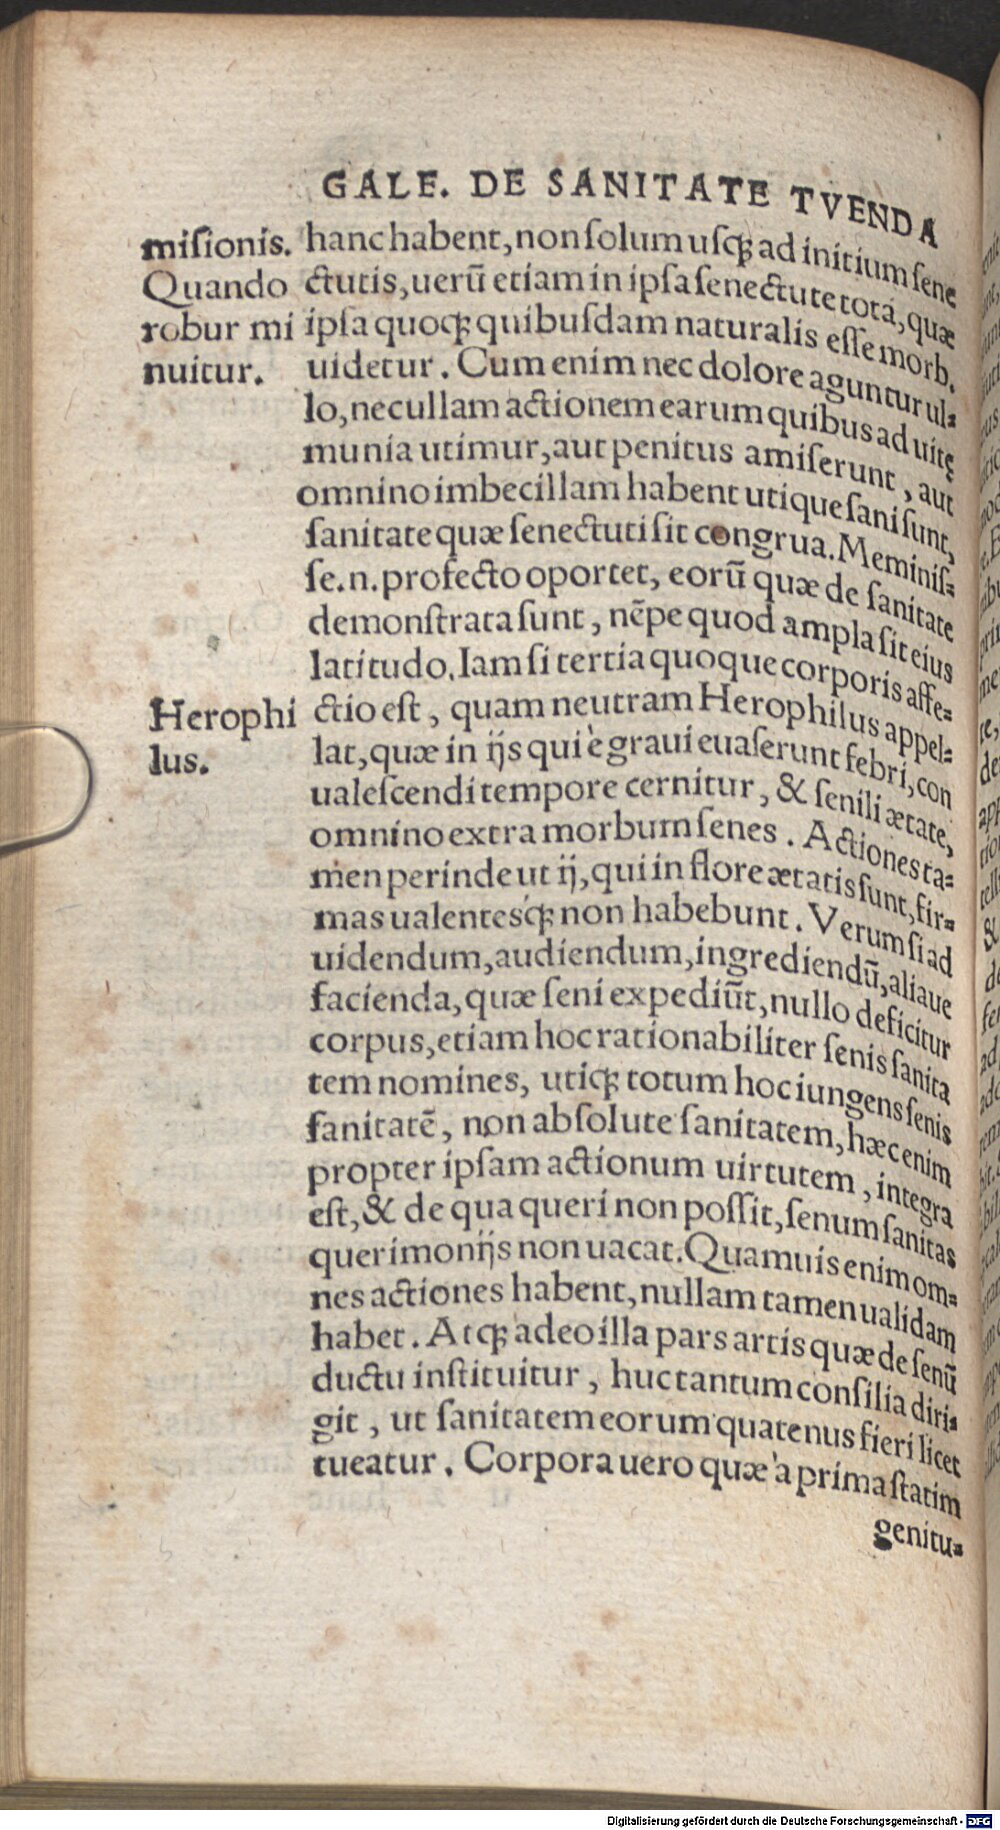 GALE. DE SANITATE TVENDA
misionis.
Quando
robur mi
nuitur.
hanc habent, non solum usq; ad initium sene
ctutis, uerū etiam in ipsa senectute tota, quæ
ipsa quoq; quibusdam naturalis esse morb.
uidetur. Cum enim nec dolore aguntur ul-
lo, nec ullam actionem earum quibus ad uitę
munia utimur, aut penitus amiserunt, aut
omnino imbecillam habent utique sani sunt,
sanitate quæ senectuti sit congrua. Meminis-
se.n. profecto oportet, eorū quæ de sanitate
demonstrata sunt, nēpe quod ampla sit eius
latitudo. Iam si tertia quoque corporis affe-
Herophi
lus.
ctio est, quam neutram Herophilus appel-
lat, quæ in ijs qui è graui euaserunt febri, con
ualescendi tempore cernitur, & senili ætate,
omnino extra morbum senes. Actiones ta-
men perinde ut ij, qui in flore ætatis sunt, fir-
mas ualentesq́; non habebunt. Verum si ad
uidendum, audiendum, ingrediendū, aliaue
facienda, quæ seni expediūt, nullo deficitur
corpus, etiam hoc rationabiliter senis sanita
tem nomines, utiq; totum hoc iungens senis
sanitatē, non absolute sanitatem, hæc enim
propter ipsam actionum uirtutem, integra
est, & de qua queri non possit, senum sanitas
querimonijs non uacat. Quamuis enim om-
nes actiones habent, nullam tamen ualidam
habet. Atq; adeo illa pars artis quæ de senū
ductu instituitur, huc tantum consilia diri-
git, ut sanitatem eorum quatenus fieri licet
tueatur. Corpora uero quæ à prima statim
genitu-
Digitalisierung gefördert durch die Deutsche Forschungsgemeinschaft - DFG